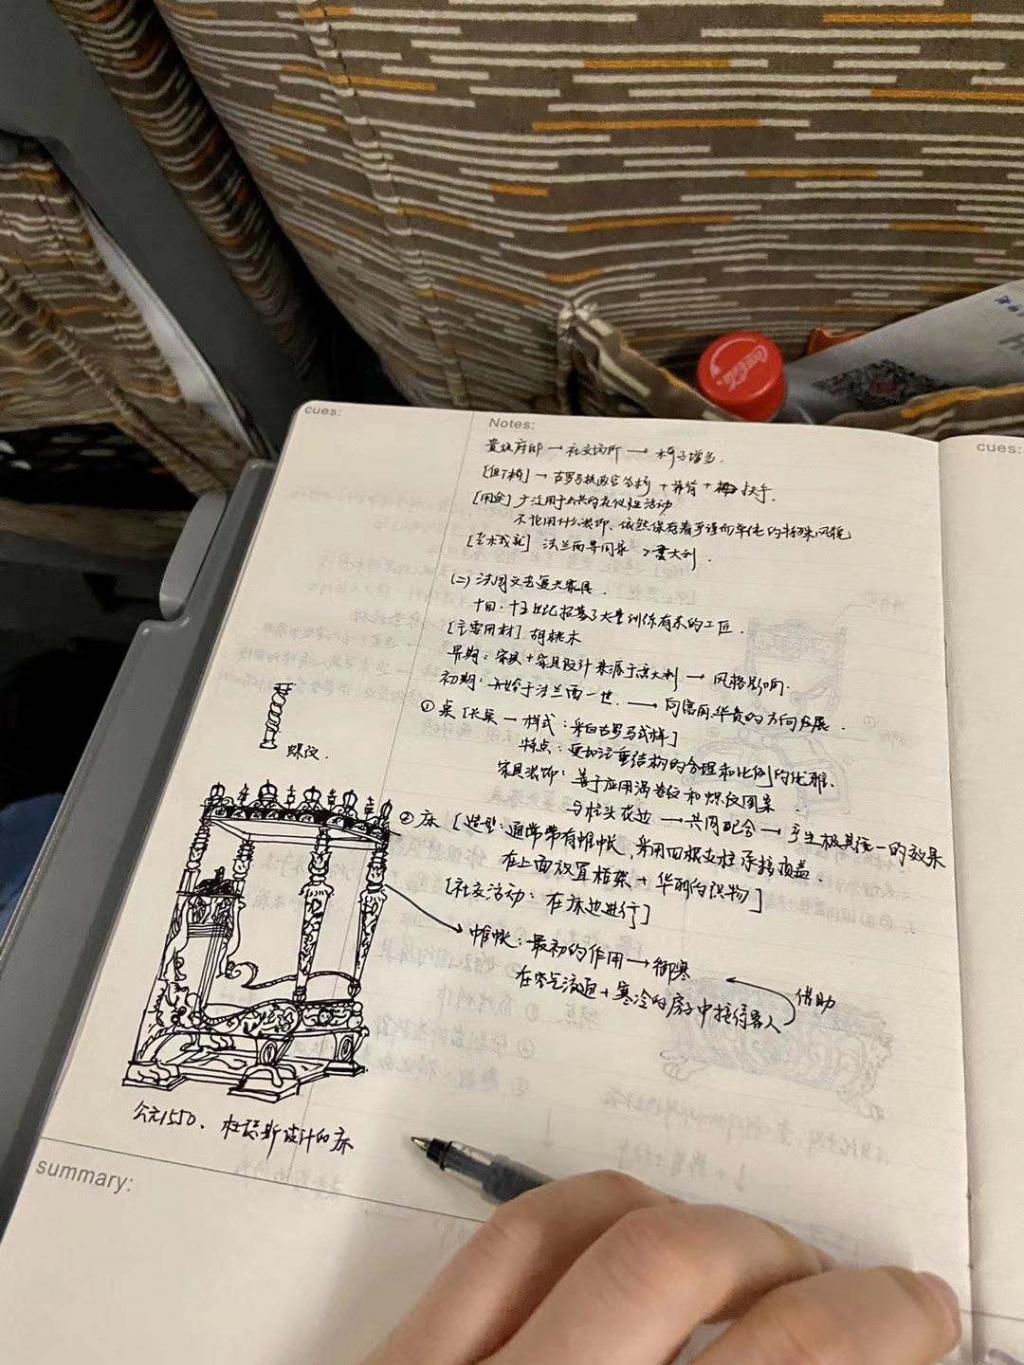 cues:
Notes:
cues:
Coca-Cola
贵族府邸→社交场所→椅子增多.
[但丁椅]→古罗马执政官座椅+靠背+扶手.
[用途]广泛用于公共的礼仪性活动
不论用什么装饰,依然保存着严谨而单纯的特殊风貌
[艺术成就] 法兰西等国家 >意大利.
(二)法国文艺复兴家具.
十四、十五世纪招募了大量训练有素的工匠.
[主要用材]胡桃木
早期:家具+家具设计来源于意大利→风格影响.
初期:开始于法兰西一世.→向富丽华贵的方向发展.
①桌[长桌—样式:采自古罗马式样]
特点:更加注重结构的合理和比例的优雅.
家具装饰:善于应用涡卷纹和螺纹图案
与柱头花边→共同配合→产生极其统一的效果
螺纹.
②床[造型:通常带有帷帐,采用四根支柱承接顶盖.
在上面放置框架+华丽的织物]
[社交活动:在床边进行]
帷帐:最初的作用→御寒
在空气流通+寒冷的房子中接待客人
借助
公元1550、杜塞斯设计的床
summary: